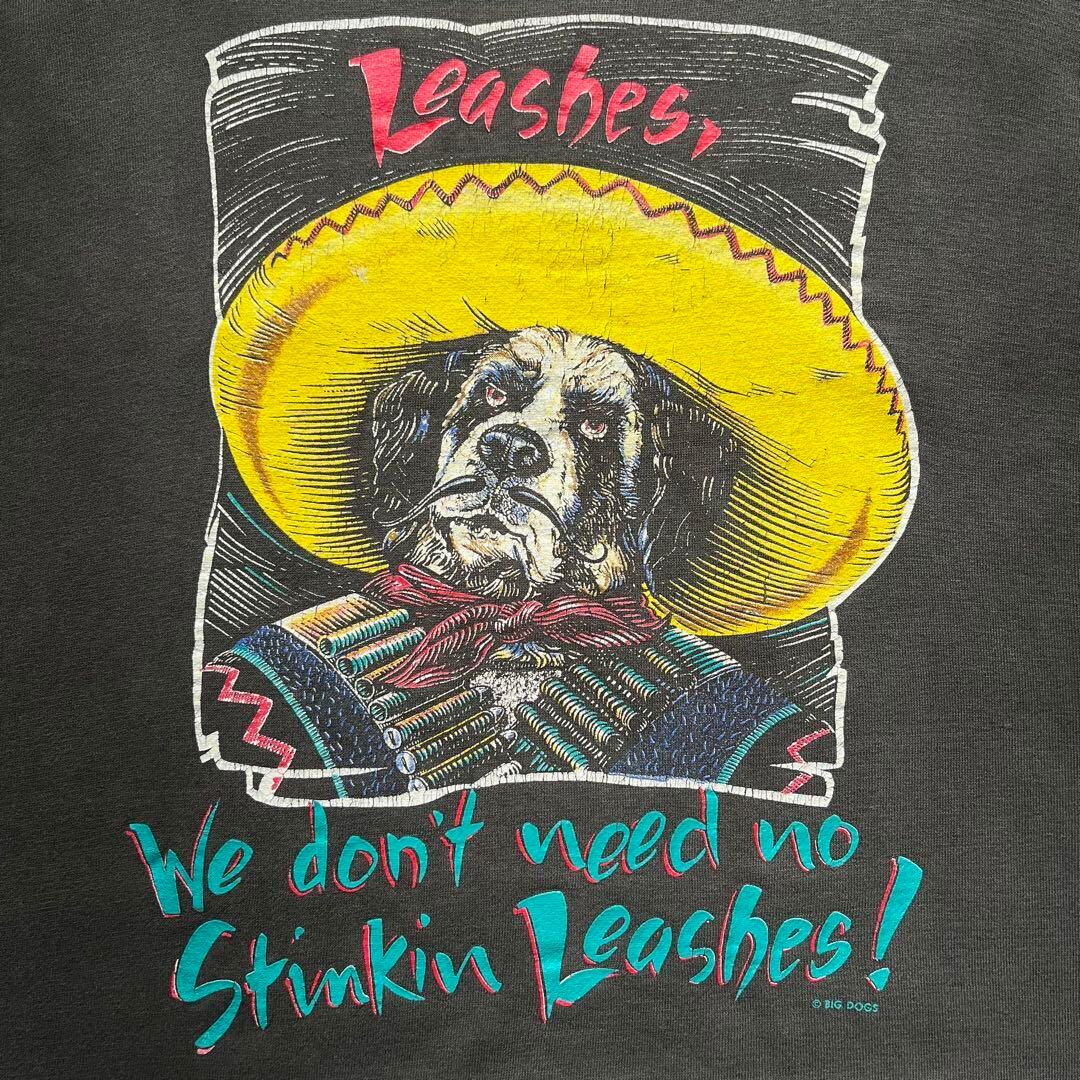 Leashes,
We don't need no
Stinkin Leashes!
© BIG DOGS